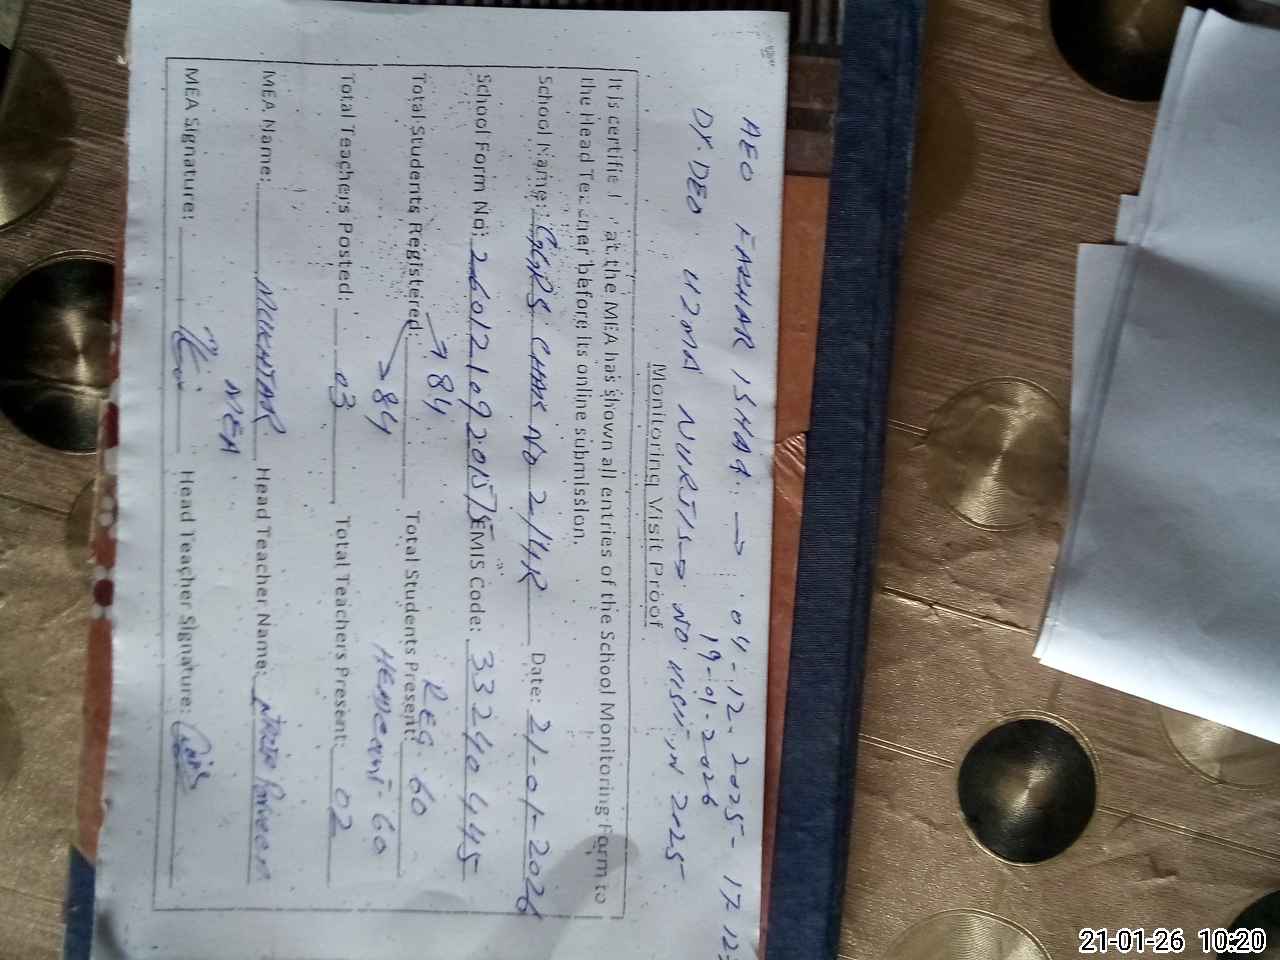 AEO FAKHAR ISHAQ. → 04-12-2025- 17 12
19-01-2026
DY.DEO UZMA → NO VISIT IN 2025
Monitoring Visit Proof
It is certified that the MEA has shown all entries of the School Monitoring Form to
the Head Teacher before its online submission.
School Name: GGPS CHAK NO 2/14R Date: 21-01-2026
School Form No: EMIS Code: 33240445
→ 84 REG 60
Total Students Registered: → 84 Total Students Present: 60
Total Teachers Posted: 03 Total Teachers Present: 02
MEA Name: MUKHTAR Head Teacher Name: Parveen
MEA Signature: Head Teacher Signature:
21-01-26 10:20